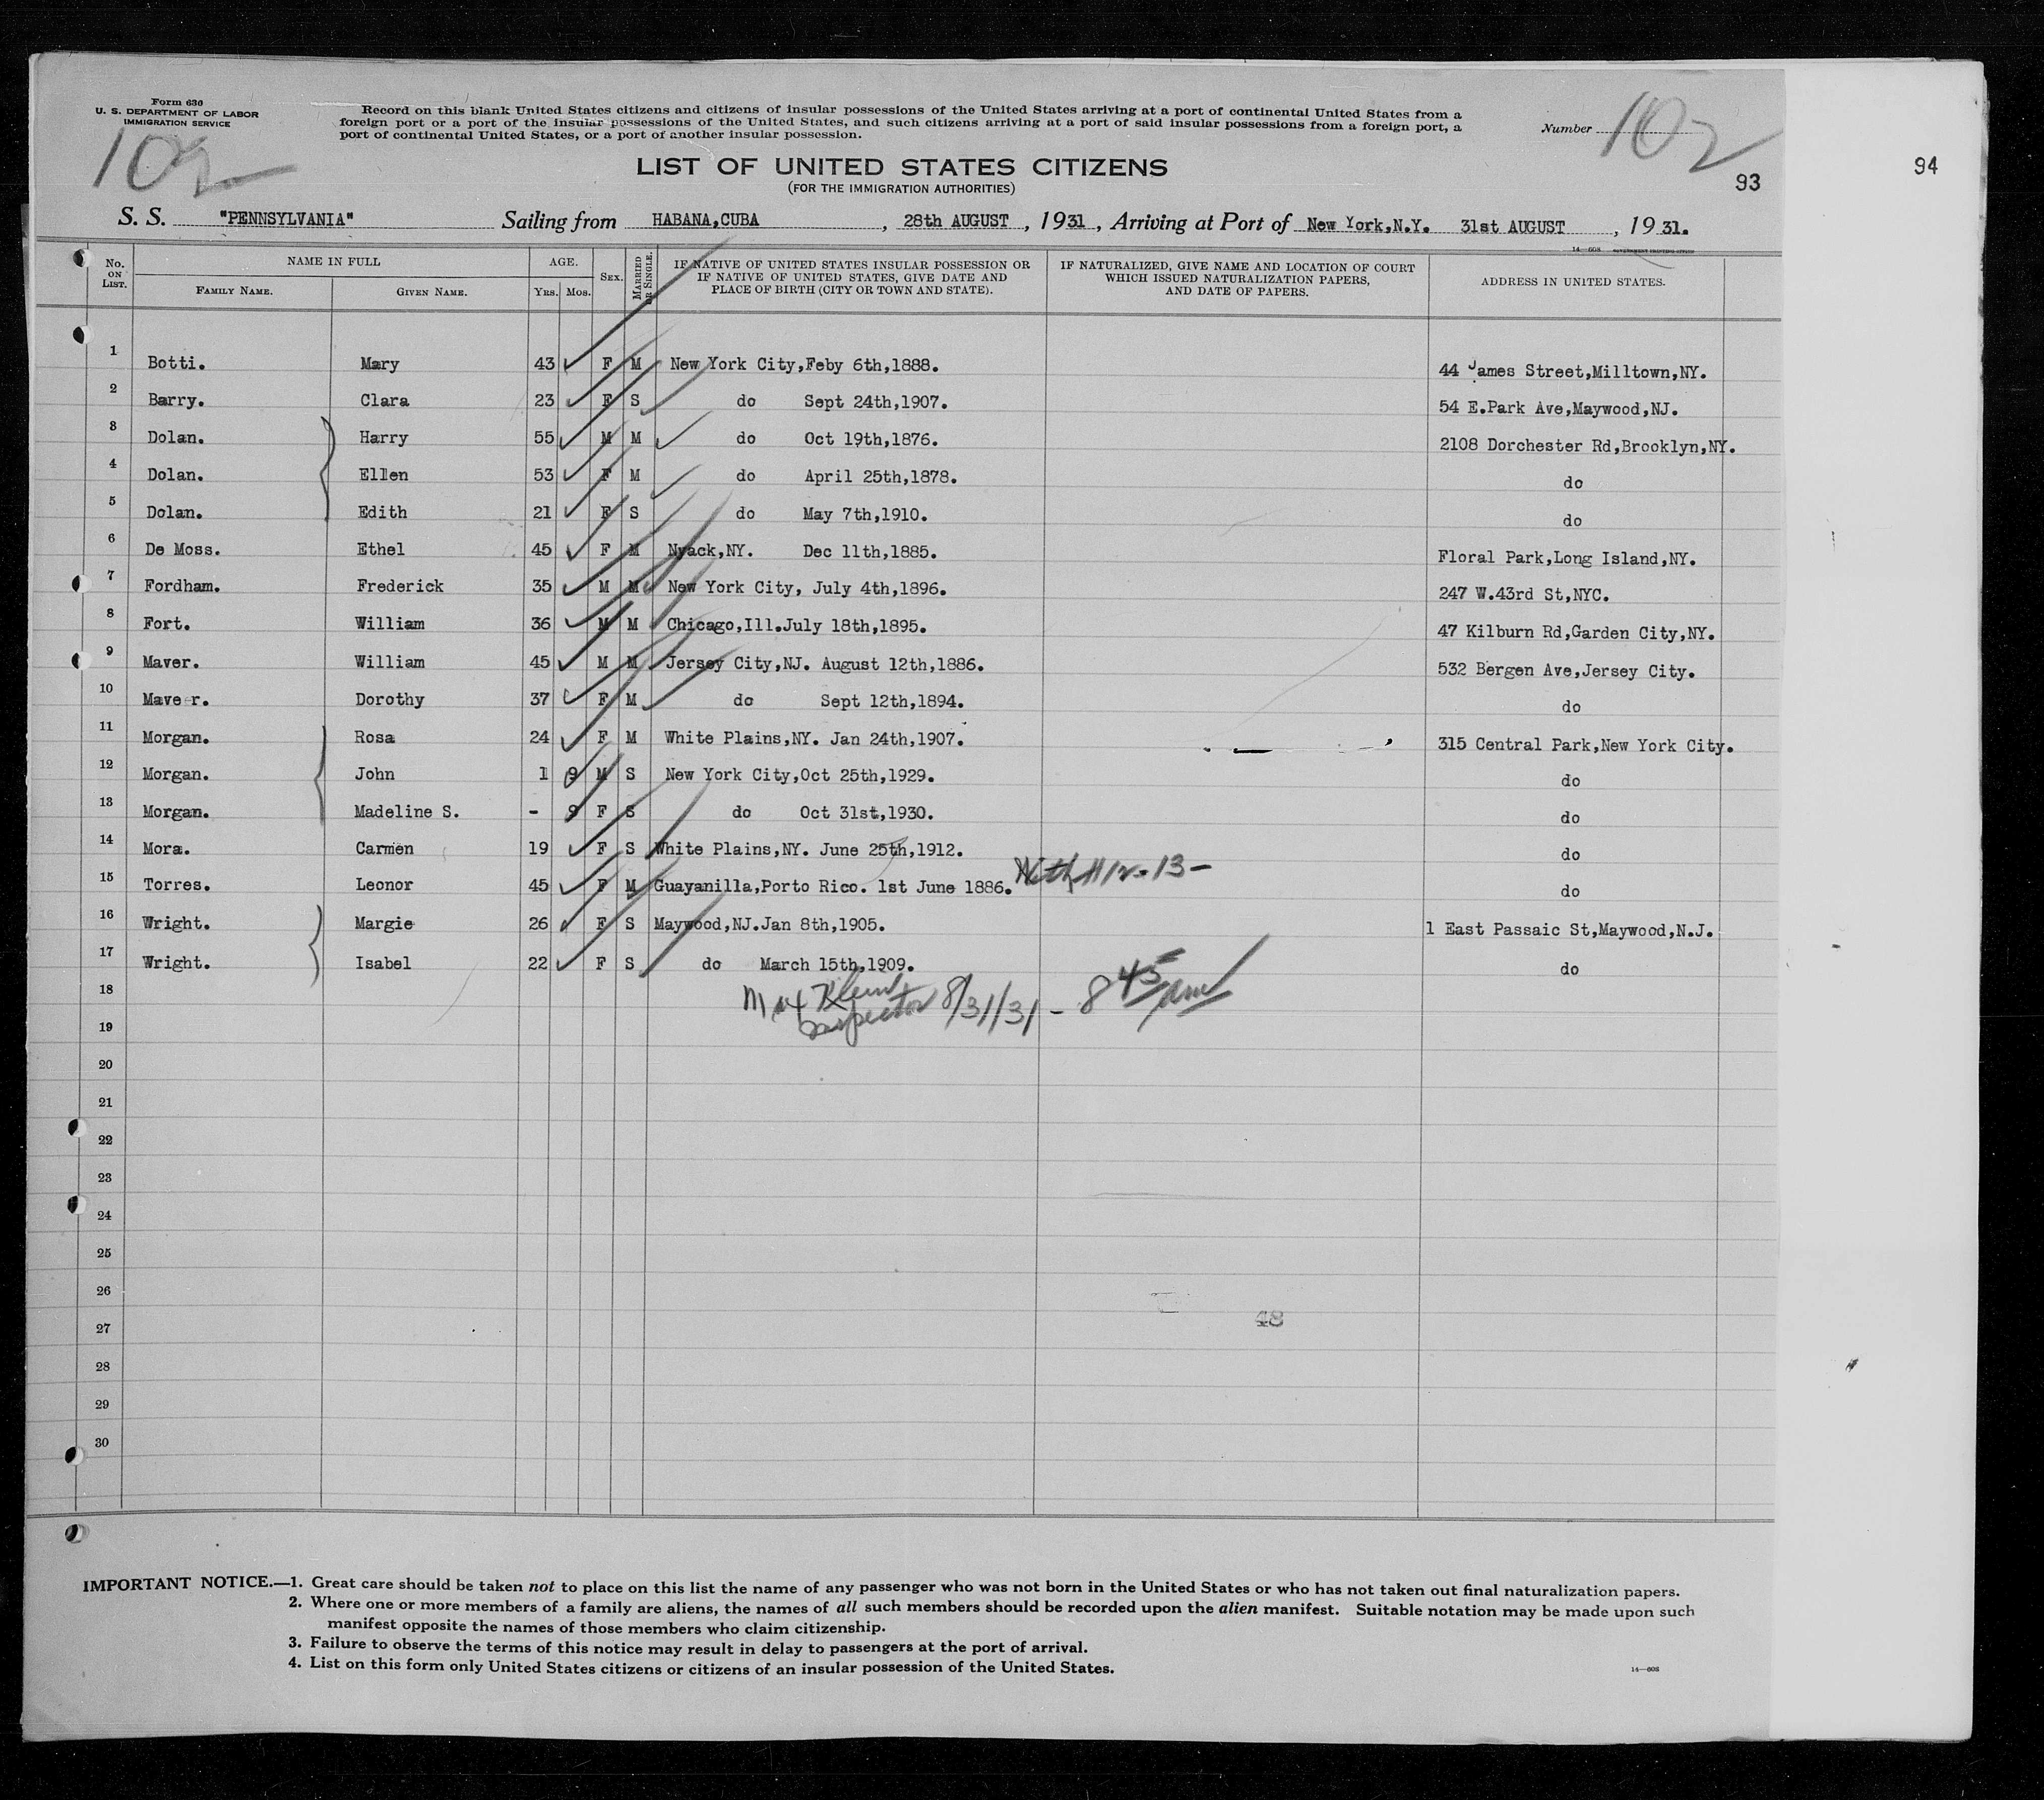 Form 630
U. S. DEPARTMENT OF LABOR
IMMIGRATION SERVICE
Record on this blank United States citizens and citizens of insular possessions of the United States arriving at a port of continental United States from a
foreign port or a port of the insular possessions of the United States, and such citizens arriving at a port of said insular possessions from a foreign port, a
port of continental United States, or a port of another insular possession.
Number 102
102
LIST OF UNITED STATES CITIZENS
(FOR THE IMMIGRATION AUTHORITIES)
93
94
S. S. "PENNSYLVANIA" Sailing from HABANA,CUBA , 28th AUGUST , 1931 , Arriving at Port of New York,N.Y. 31st AUGUST , 1931.
14—608 GOVERNMENT PRINTING OFFICE
No. ON LIST. NAME IN FULL FAMILY NAME. GIVEN NAME. AGE. YRS. MOS. SEX. MARRIED OR SINGLE. IF NATIVE OF UNITED STATES INSULAR POSSESSION OR IF NATIVE OF UNITED STATES, GIVE DATE AND PLACE OF BIRTH (CITY OR TOWN AND STATE). IF NATURALIZED, GIVE NAME AND LOCATION OF COURT WHICH ISSUED NATURALIZATION PAPERS, AND DATE OF PAPERS. ADDRESS IN UNITED STATES.
1 Botti. Mary 43 F M New York City,Feby 6th,1888. 44 James Street,Milltown,NY.
2 Barry. Clara 23 F S do Sept 24th,1907. 54 E.Park Ave,Maywood,NJ.
3 Dolan. Harry 55 M M do Oct 19th,1876. 2108 Dorchester Rd,Brooklyn,NY.
4 Dolan. Ellen 53 F M do April 25th,1878. do
5 Dolan. Edith 21 F S do May 7th,1910. do
6 De Moss. Ethel 45 F M Nyack,NY. Dec 11th,1885. Floral Park,Long Island,NY.
7 Fordham. Frederick 35 M M New York City, July 4th,1896. 247 W.43rd St,NYC.
8 Fort. William 36 M M Chicago,Ill.July 18th,1895. 47 Kilburn Rd,Garden City,NY.
9 Maver. William 45 M M Jersey City,NJ. August 12th,1886. 532 Bergen Ave,Jersey City.
10 Maver. Dorothy 37 F M do Sept 12th,1894. do
11 Morgan. Rosa 24 F M White Plains,NY. Jan 24th,1907. 315 Central Park,New York City.
12 Morgan. John 1 9 M S New York City,Oct 25th,1929. do
13 Morgan. Madeline S. - 9 F S do Oct 31st,1930. do
14 Mora. Carmen 19 F S White Plains,NY. June 25th,1912. do
15 Torres. Leonor 45 F M Guayanilla,Porto Rico. 1st June 1886. With 11 12-13- do
16 Wright. Margie 26 F S Maywood,NJ.Jan 8th,1905. 1 East Passaic St,Maywood,N.J.
17 Wright. Isabel 22 F S do March 15th,1909. do
18
Max Klein
Inspector 8/31/31 - 8 45 am
19
20
21
22
23
24
25
26
27
48
28
29
30
IMPORTANT NOTICE.—1. Great care should be taken not to place on this list the name of any passenger who was not born in the United States or who has not taken out final naturalization papers.
2. Where one or more members of a family are aliens, the names of all such members should be recorded upon the alien manifest. Suitable notation may be made upon such
manifest opposite the names of those members who claim citizenship.
3. Failure to observe the terms of this notice may result in delay to passengers at the port of arrival.
4. List on this form only United States citizens or citizens of an insular possession of the United States.
14—608